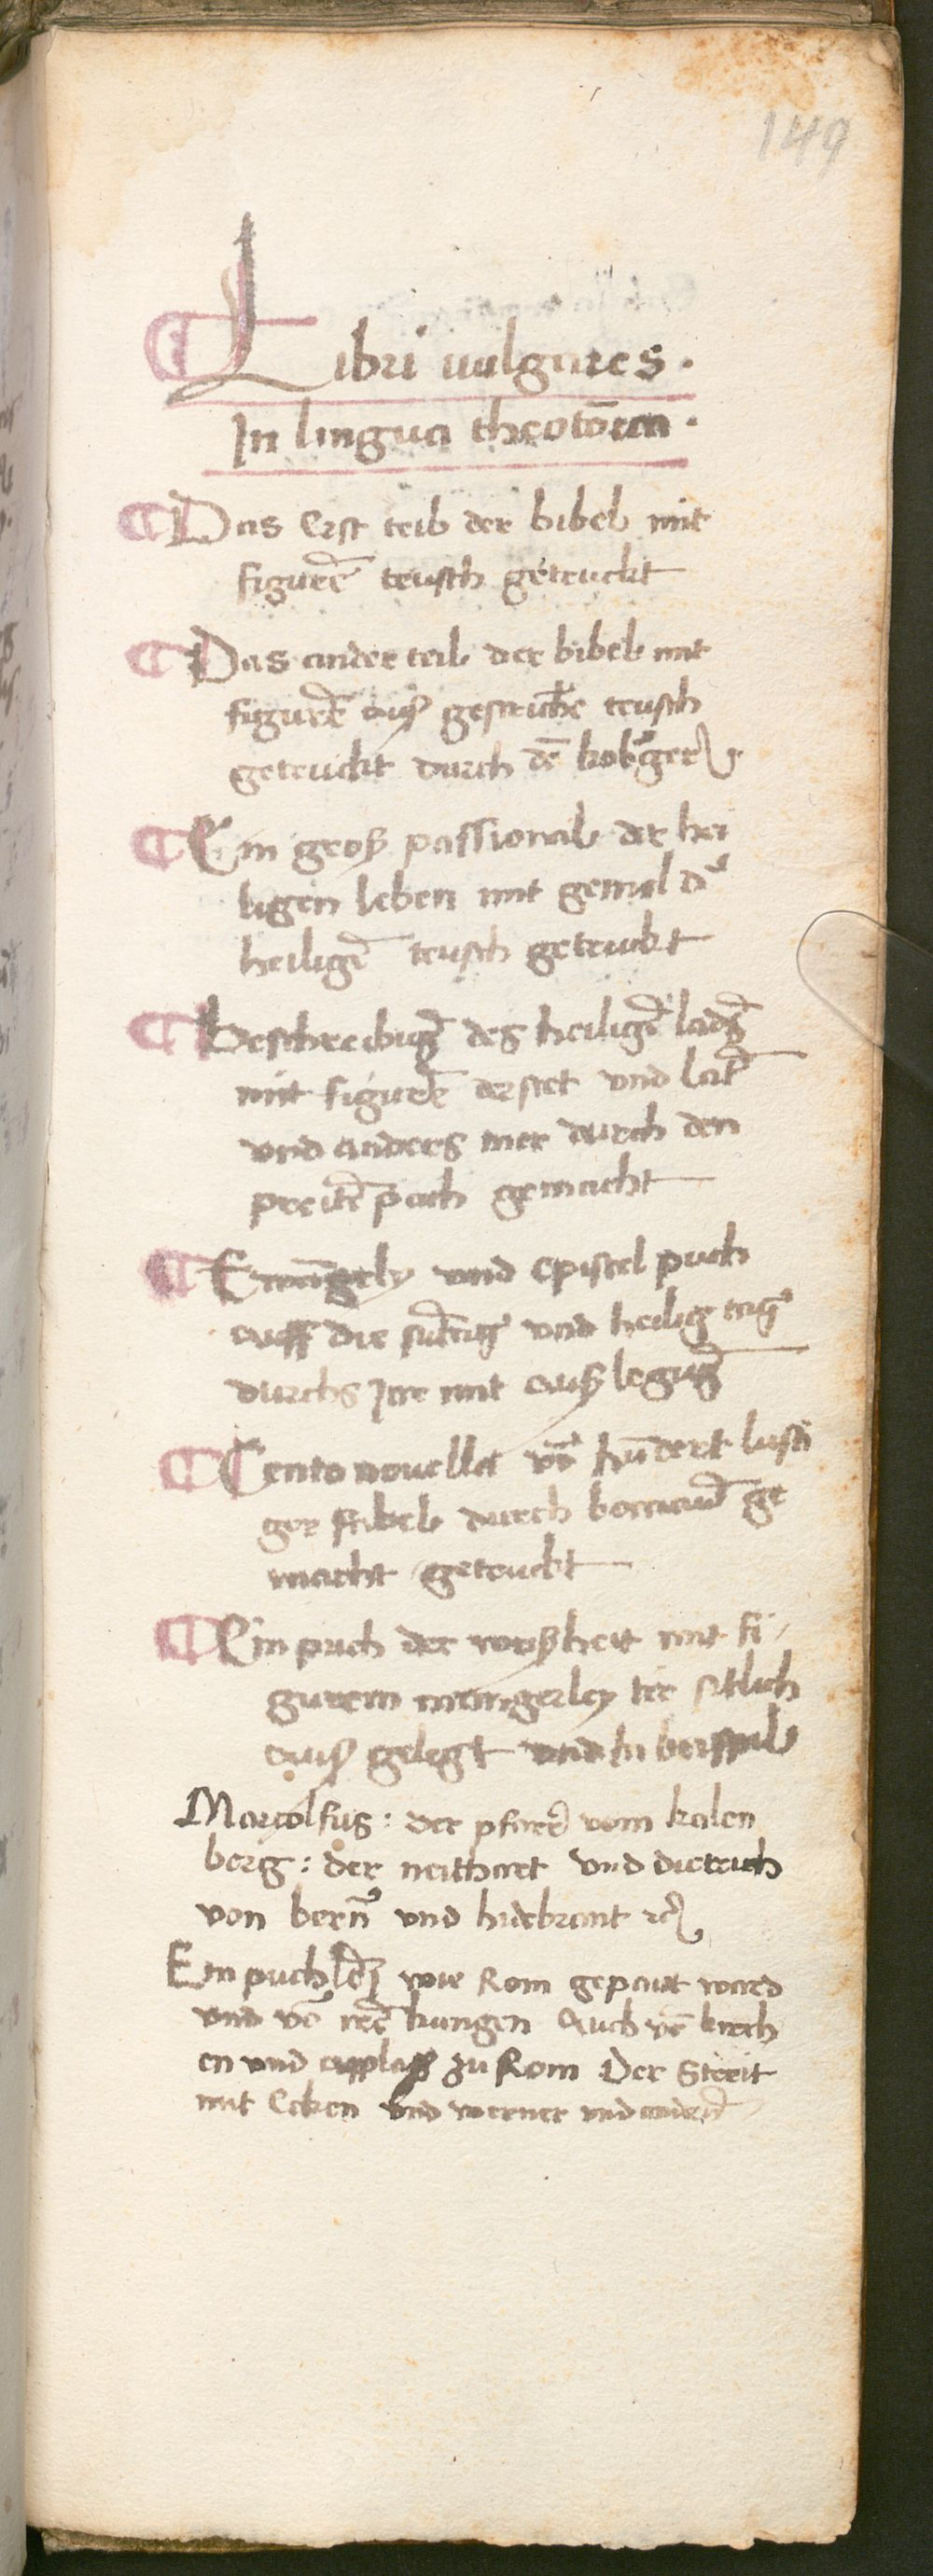 149
Libri uulgares.
In lingua theotoīca.
Das Erst teil der bibel mit
figurē teusch getruckt
Das ander teil der bibel mit
figurē auß gestrichē teusch
getruckt durch dē kobᵉger
Ein groß passional der hei
ligen leben mit gemel dᵉ
heiligē teusch getruckt
Beschreibūg des heiligē ladß
mit figurē der stet vnd
vnd anders mer durch den
preitē pach gemacht
Ewāgely vnd Epistel puch
auff die sūtag vnd heilig tag
durchs Jar mit auß legūg
Cento nouella vō hūdert lusti
ger fabel durch bocaciū ge
macht getruckt
Ein puch der weyßheit mit fi
guren mengerley tir sitlich
auß gelegt vnd In beispil
Marcolfus: der pfarrer vom kalen
berg: der neithart vnd dietrich
von bern vnd hildebrant
Ein puchl wie Rom gepawt ward
vnd vō kungen Auch vō kirch
en vnd applaß zu Rom Der Streit
mit Ecken vnd werner vnd anderē